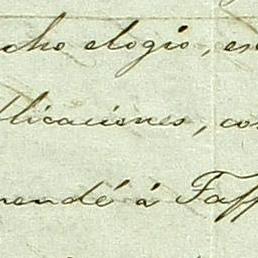 cho elogio, es
blicaciones, con
rendé á Taff